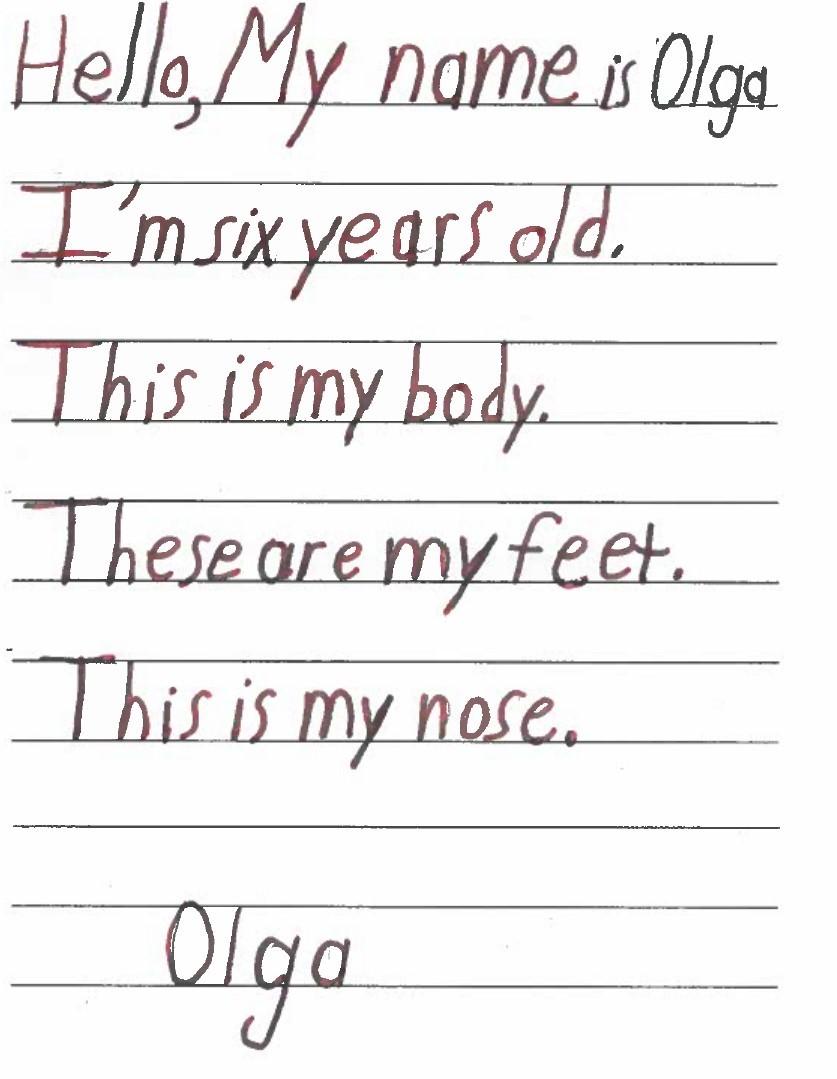 Hello, My name is Olga
I'm six years old.
This is my body.
These are my feet.
This is my nose.
Olga